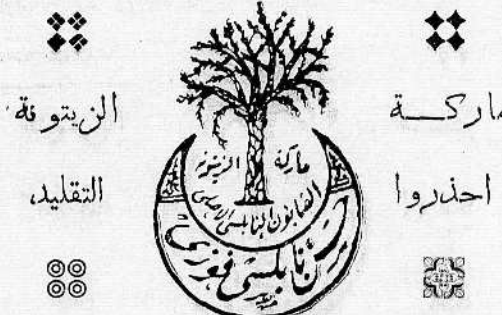 ماركـــة الزيتونة
احذروا التقليد
ماركة الزيتونة
الصابون النابلسي الاصلي
نابلسي